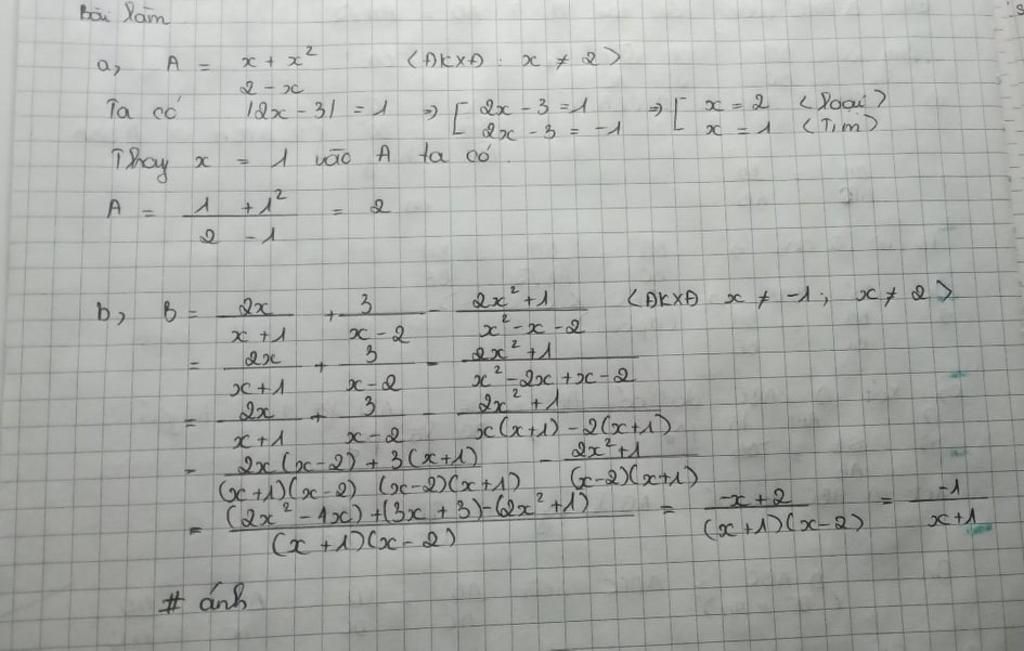 Bài làm
a, A = x + x² / 2 - x (ĐKXĐ: x ≠ 2)
Ta có |2x - 3| = 1 ⇒ [ 2x - 3 = 1 ; 2x - 3 = -1 ⇒ [ x = 2 (loại) ; x = 1 (T/m)
Thay x = 1 vào A ta có
A = (1 + 1²) / (2 - 1) = 2
b, B = 2x/(x + 1) + 3/(x - 2) - (2x² + 1)/(x² - x - 2) (ĐKXĐ x ≠ -1; x ≠ 2)
= 2x/(x + 1) + 3/(x - 2) - (2x² + 1)/(x² - 2x + x - 2)
= 2x/(x + 1) + 3/(x - 2) - (2x² + 1)/(x(x + 1) - 2(x + 1))
= 2x(x - 2)/((x + 1)(x - 2)) + 3(x + 1)/((x - 2)(x + 1)) - (2x² + 1)/((x - 2)(x + 1))
= ((2x² - 4x) + (3x + 3) - (2x² + 1))/((x + 1)(x - 2)) = (-x + 2)/((x + 1)(x - 2)) = -1/(x + 1)
# ánh